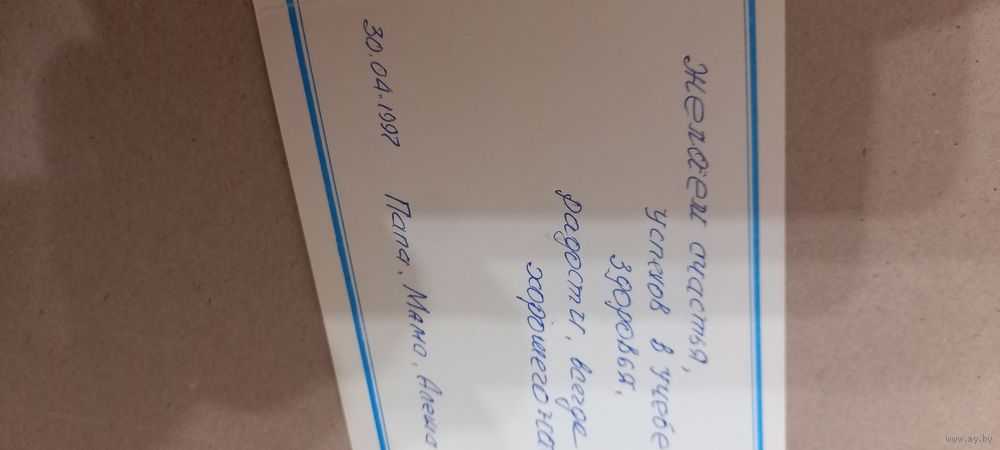 желаем счастья,
успехов в учебе
здоровья.
радости, всегда
хорошего на
30.04.1997 Папа, Мама, Алеша
www.ay.by